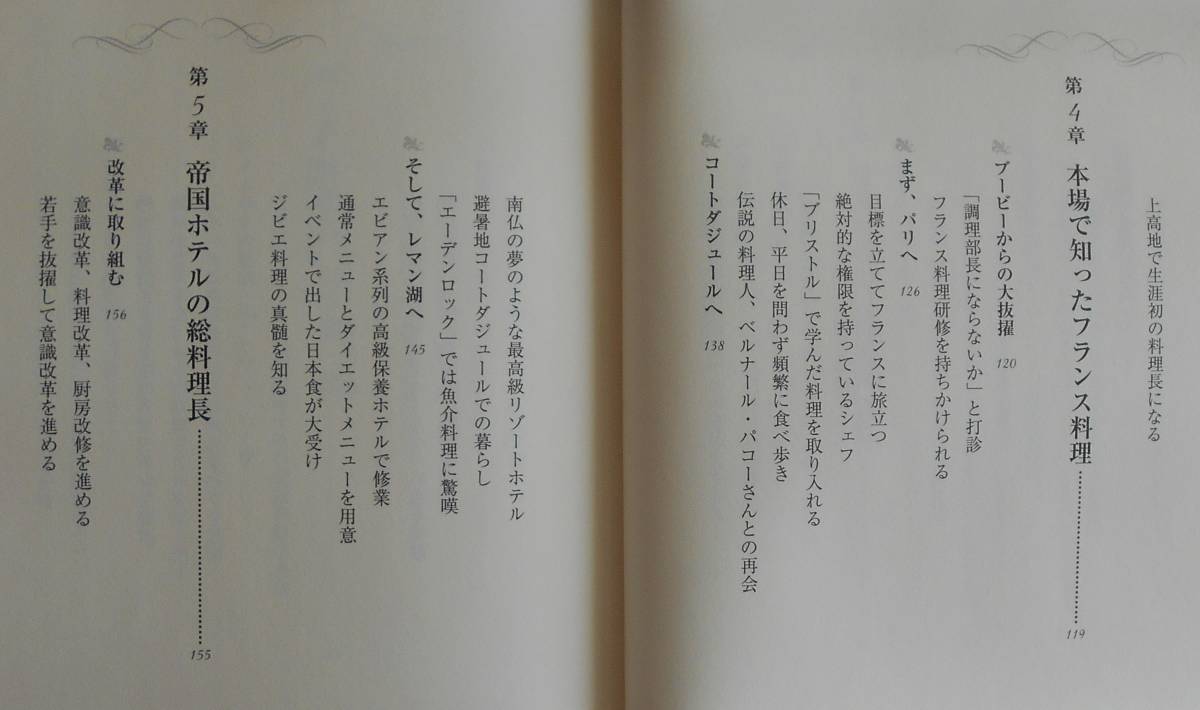 上高地で生涯初の料理長になる
第4章 本場で知ったフランス料理……………………119
ブービーからの大抜擢 120
「調理部長にならないか」と打診
フランス料理研修を持ちかけられる
まず、パリへ 126
目標を立ててフランスに旅立つ
絶対的な権限を持っているシェフ
「ブリストル」で学んだ料理を取り入れる
休日、平日を問わず頻繁に食べ歩き
伝説の料理人、ベルナール・パコーさんとの再会
コートダジュールへ 138
南仏の夢のような最高級リゾートホテル
避暑地コートダジュールでの暮らし
「エーデンロック」では魚介料理に驚嘆
そして、レマン湖へ 145
エビアン系列の高級保養ホテルで修業
通常メニューとダイエットメニューを用意
イベントで出した日本食が大受け
ジビエ料理の真髄を知る
第5章 帝国ホテルの総料理長……………………155
改革に取り組む 156
意識改革、料理改革、厨房改修を進める
若手を抜擢して意識改革を進める